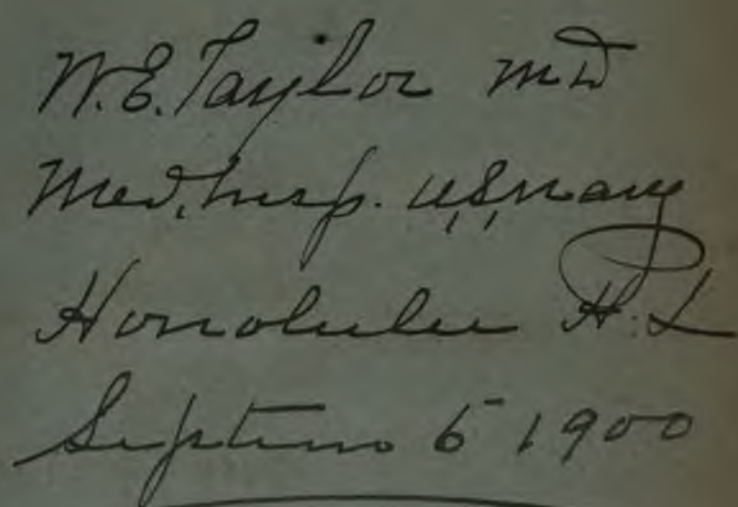 W.E. Taylor MD
Med, Insp. U,S, Navy
Honolulu H. I
Septem 5 1900